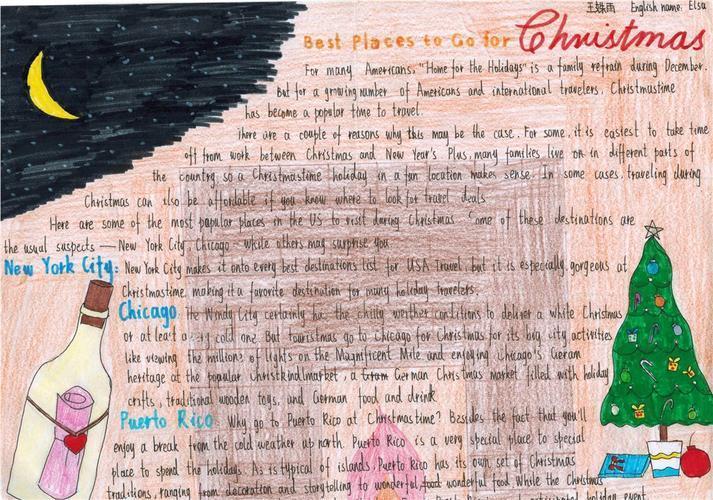 王姝雨 English name: Elsa
Best Places to Go for Christmas
For many Americans, "Home for the Holidays" is a family refrain during December.
But for a growing number of Americans and international travelers, Christmastime
has become a popular time to travel.
There are a couple of reasons why this may be the case. For some, it is easiest to take time
off from work between Christmas and New Year's Plus, many families live on in different parts of
the country, so a Christmastime holiday in a fun location makes sense. In some cases, traveling during
Christmas can also be affordable if you know where to look for travel deals.
Here are some of the most popular places in the US to visit during Christmas. Some of these destinations are
the usual suspects — New York City, Chicago - while others may surprise you
New York City: New York City makes it onto every best destinations list for USA Travel, but it is especially gorgeous at
Christmastime, making it a favorite destination for many holiday travelers.
Chicago. The Windy City certainly has the chilly weather conditions to deliver a white Christmas
or at least a very cold one. But tourismas go to Chicago for Christmas for its big city activities
like viewing the millions of lights on the Magnificent Mile and enjoying Chicago's German
heritage at the popular Christkindlmarket, a German Christmas market filled with holiday
crafts, traditional wooden toys, and German food and drink.
Puerto Rico Why go to Puerto Rico at Christmastime? Besides the fact that you'll
enjoy a break from the cold weather up north, Puerto Rico is a very special place to special
place to spend the holidays. As is typical of islands, Puerto Rico has its own set of Christmas
traditions, ranging from decoration and storytelling to wonderful food wonderful food. While the Christmas